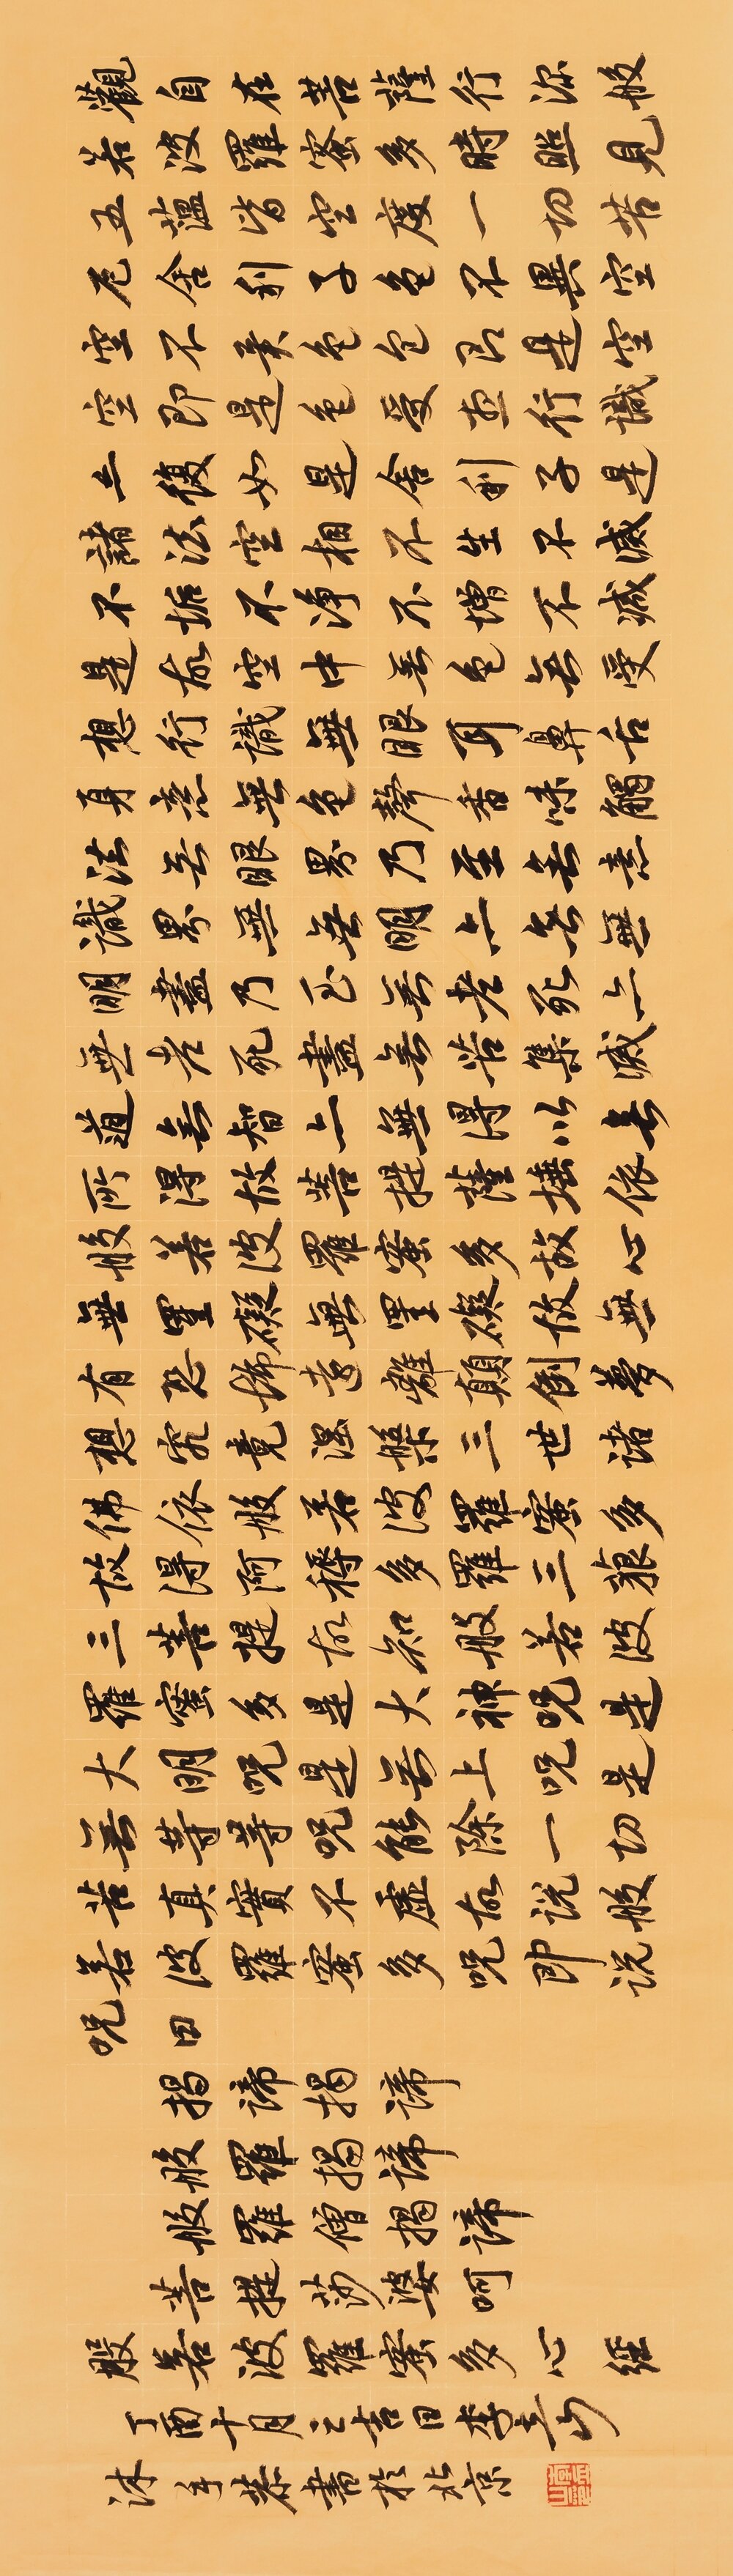 觀自在菩薩行深般
若波羅蜜多時照見
五蘊皆空度一切苦
厄舍利子色不異空
空不異色色即是空
空即是色受想行識
亦復如是舍利子是
諸法空相不生不滅
不垢不淨不增不減
是故空中無色無受
想行識無眼耳鼻舌
身意無色聲香味觸
法無眼界乃至無意
識界無無明亦無無
明盡乃至無老死亦
無老死盡無苦集滅
道無智亦無得以無
所得故菩提薩埵依
般若波羅蜜多故心
無罣礙無罣礙故無
有恐怖遠離顛倒夢
想究竟涅槃三世諸
佛依般若波羅蜜多
故得阿耨多羅三藐
三菩提故知般若波
羅蜜多是大神呪是
大明呪是無上呪是
無等等呪能除一切
苦真實不虛故說般
若波羅蜜多呪即說
呪曰
揭諦揭諦
般羅揭諦
般羅僧揭諦
菩提莎婆呵
般若波羅蜜多心經
丁酉十月之吉日李山
沐手恭書於北京